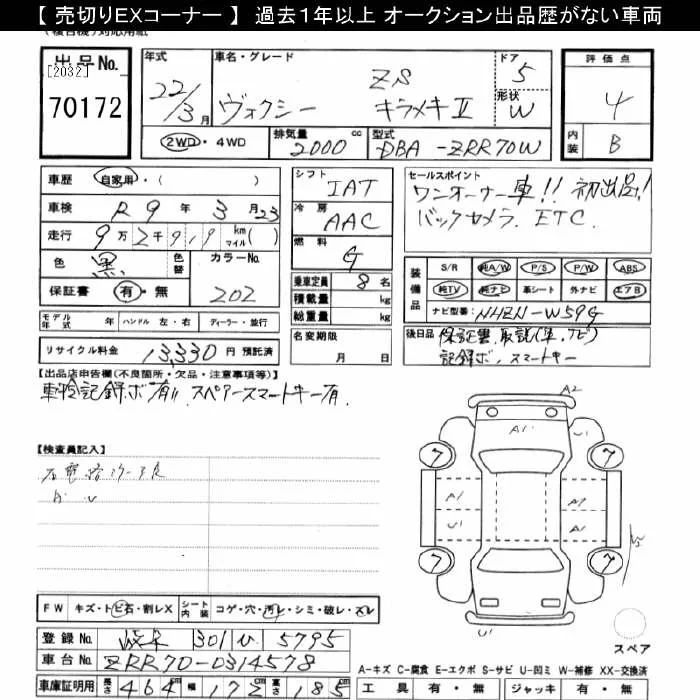 【 売切りEXコーナー 】 過去１年以上 オークション出品歴がない車両
出品No. [2032] 70172
年式 22/3月
車名・グレード ヴォクシー ZS キラメキⅡ
ドア 5 形状 W
評価点 4
内装 B
2WD・4WD
排気量 2000 cc
型式 DBA-ZRR70W
車歴 自家用・( )
車検 R9年3月23
走行 9万2千919 km マイル( )
色 黒 色替
カラーNo. 202
保証書 有・無
モデル年式 年 ハンドル 左・右 ディーラー・並行
リサイクル料金 13,330 円 預託済
シフト IAT
冷房 AAC
燃料 G
乗車定員 8 名
積載量 kg
総重量 kg
名変期限 月 日
セールスポイント
ワンオーナー車!! 初出品!
バックカメラ. ETC.
装備品 S/R 純A/W P/S P/W ABS
純TV 純ナビ 革シート 外ナビ エアB
ナビ型番: NHZN-W59G
後日品 保証書、取説(車、ナビ)
記録ボ、スマートキー
【出品店申告欄(不良箇所・欠品・注意事項等)】
車検記録ボ有!! スペアースマートキー有.
【検査員記入】
A U
A2
A1 U1
7 7
A1 A1
U1 A1
7 7
U1
スペア
FW キズ・トビ石・割レX シート内装 コゲ・穴・汚レ・シミ・破レ・スレ
登録No. 岐阜 301 ひ 5795
車台No. ZRR70-0314578
車庫証明用 長さ 464 cm 幅 172 cm 高さ 185 cm
A-キズ C-腐食 E-エクボ S-サビ U-凹ミ W-補修 XX-交換済
工具 有・無 ジャッキ 有・無